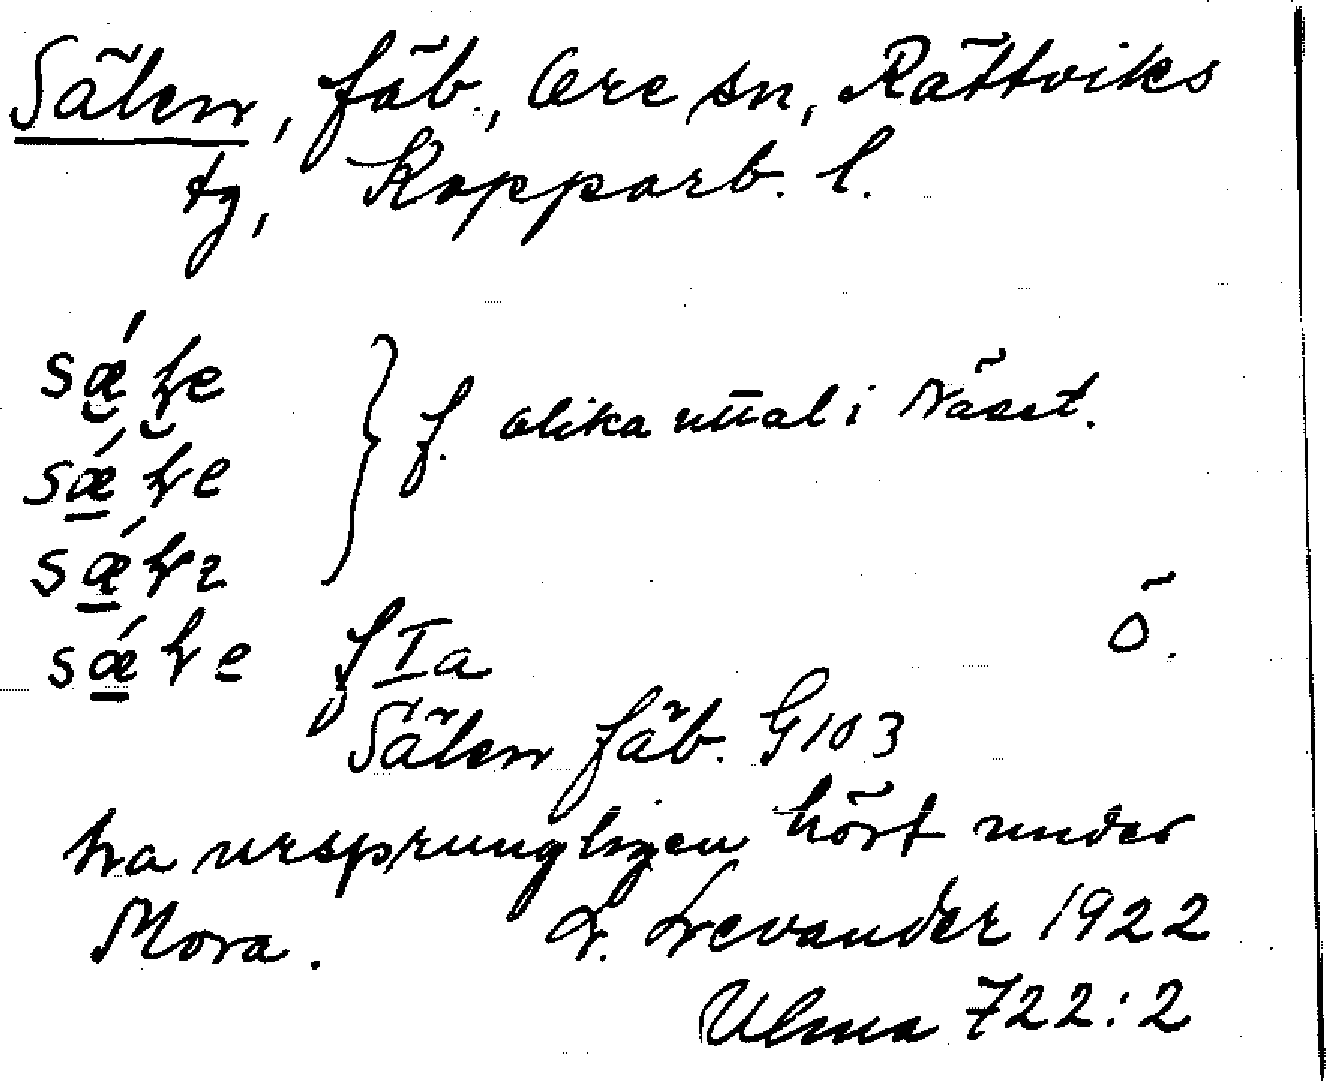 Sälen, fäb., Ore sn, Rättviks
tg, Kopparb. l.
sǽ̮ɫ̮e
sǽ̠ɫe } f. olika uttal i Näset.
sǽ̠ɫı
sǽ̠ɫe f Ia Ö.
Sälen fäb. G103
ha ursprungligen hört under
Mora. L. Levander 1922
Ulma 722:2